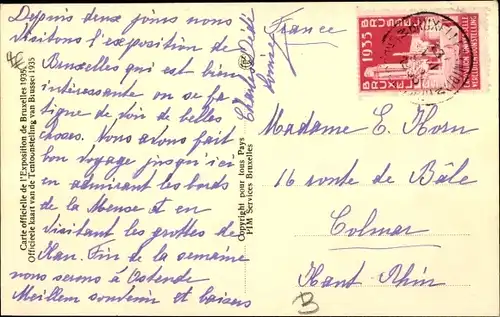 Depuis deux jours nous
visitons l'exposition de
Bruxelles qui est bien
intéressante on se fa-
tigue de voir de belles
choses. Nous avons fait
bon voyage jusqu'ici
en admirant les bords
de la Meuse et en
visitant les grottes de
Han. Fin de la semaine
nous serons à Ostende
Meillem souvenir et baisers
Charles Dédé
France
Madame E. Horn
16 route de Bâle
Colmar
Haut Rhin
B
Carte officielle de l'Exposition de Bruxelles 1935.
Officieele kaart van de Tentoonstelling van Brussel 1935
Copyright pour tous Pays
PIM Services Bruxelles
1935
BRUXELLES
BRUSSEL